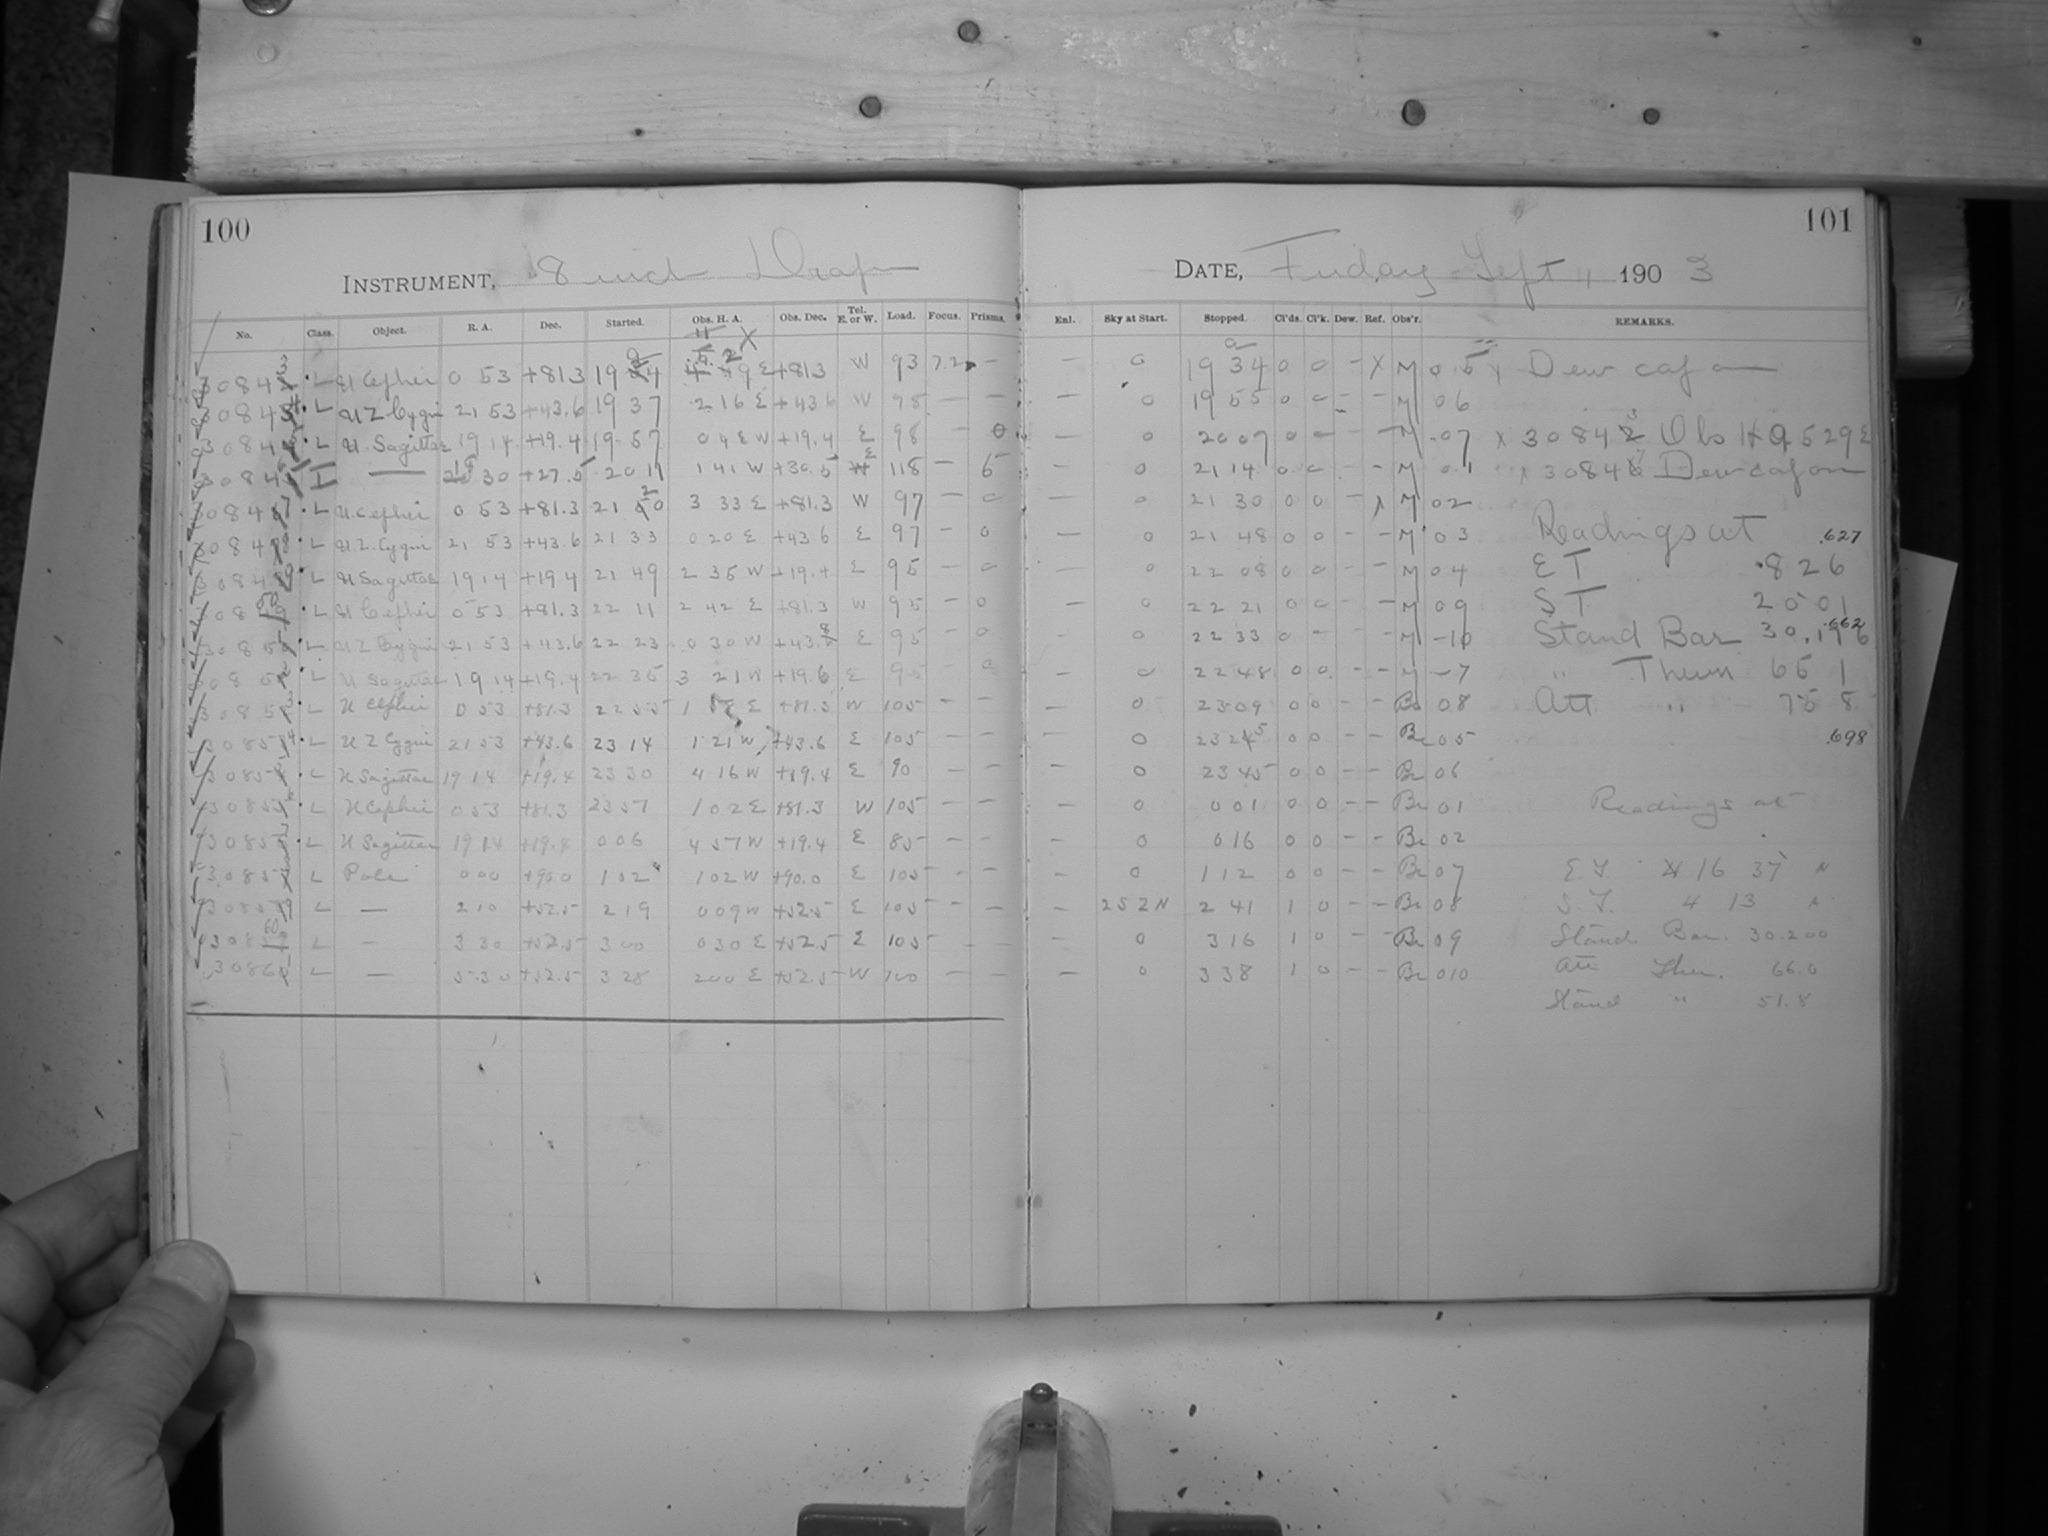 100
101
INSTRUMENT, 8 inch Draper
DATE, Friday Sept 11 1903
No. Class. Object. R. A. Dec. Started. Obs. H. A. Obs. Dec. Tel. E. or W. Load. Focus. Prisms.
Enl. Sky at Start. Stopped. Cl'ds. Cl'k. Dew. Ref. Obs'r. REMARKS.
L U Cephei 0 53 +81.3 19 +81.3 W 93 7.2 — — 0 19 34 0 0 - X M Dew cap on
L UZ Cygni 21 53 +43.6 19 37 2 16 E +43.6 W 95 — — — 0 19 55 0 0 - - M 06
L U Sagittae 19 14 +19.4 19 57 0 4 E W +19.4 E 98 - 0 — 0 20 07 0 0 - - M .07 x 30843 Obs HA 5 29 E
I — 30 +27.5 20 11 1 41 W +30.5 E 118 — 5 — 0 21 14 0 0 - - M 01 x Dew cap on
L U Cephei 0 53 +81.3 21 20 3 33 E +81.3 W 97 - 0 — 0 21 30 0 0 - X M 02
L UZ Cygni 21 53 +43.6 21 33 0 20 E +43.6 E 97 - 0 — 0 21 48 0 0 - - M 03 Readings at .627
L U Sagittae 19 14 +19.4 21 49 2 35 W +19.4 E 95 - 0 — 0 22 08 0 0 - - M 04 ET .826
L U Cephei 0 53 +81.3 22 11 2 42 E +81.3 W 95 - 0 — 0 22 21 0 0 - - M 09 ST 20 01
L UZ Cygni 21 53 +43.6 22 23 0 30 W E 95 - 0 - 0 22 33 0 - - - M -10 Stand Bar 30.196 .662
L U Sagittae 19 14 +19.4 22 35 3 21 W +19.6 E 95 - 0 — 0 22 48 0 0 - - M -7 " Therm 65 1
L U Cephei 0 53 +81.3 22 55 +81.3 W 105 - - — 0 23 09 0 0 - - Br 08 Att " 75 8
L UZ Cygni 21 53 +43.6 23 14 1 21 W +43.6 E 105 - - — 0 0 0 - - Br 05 .698
L U Sagittae 19 14 +19.4 23 30 4 16 W +19.4 E 90 - - — 0 23 45 0 0 - - Br 06
L U Cephei 0 53 +81.3 23 57 1 02 E +81.3 W 105 - - — 0 0 01 0 0 - - Br 01 Readings at
L U Sagittae 19 14 +19.4 0 06 4 57 W +19.4 E 85 - - - 0 0 16 0 0 - - Br 02
L Pole 0 00 +90.0 1 02 1 02 W +90.0 E 105 - - - 0 1 12 0 0 - - Br 07 E.T. 16 37
L — 2 10 +52.5 2 19 0 09 W +52.5 E 105 - - - 2 41 1 0 - - Br 08 S.T. 4 13
L - 3 30 +52.5 3 00 0 30 E +52.5 E 105 - - - 0 3 16 1 0 - - Br 09 Stand. Bar. 30.200
L — 5 30 +52.5 3 28 2 00 E +52.5 W 100 - - — 0 3 38 1 0 - - Br 010 Att Ther. 66.0
Stand " 51.8